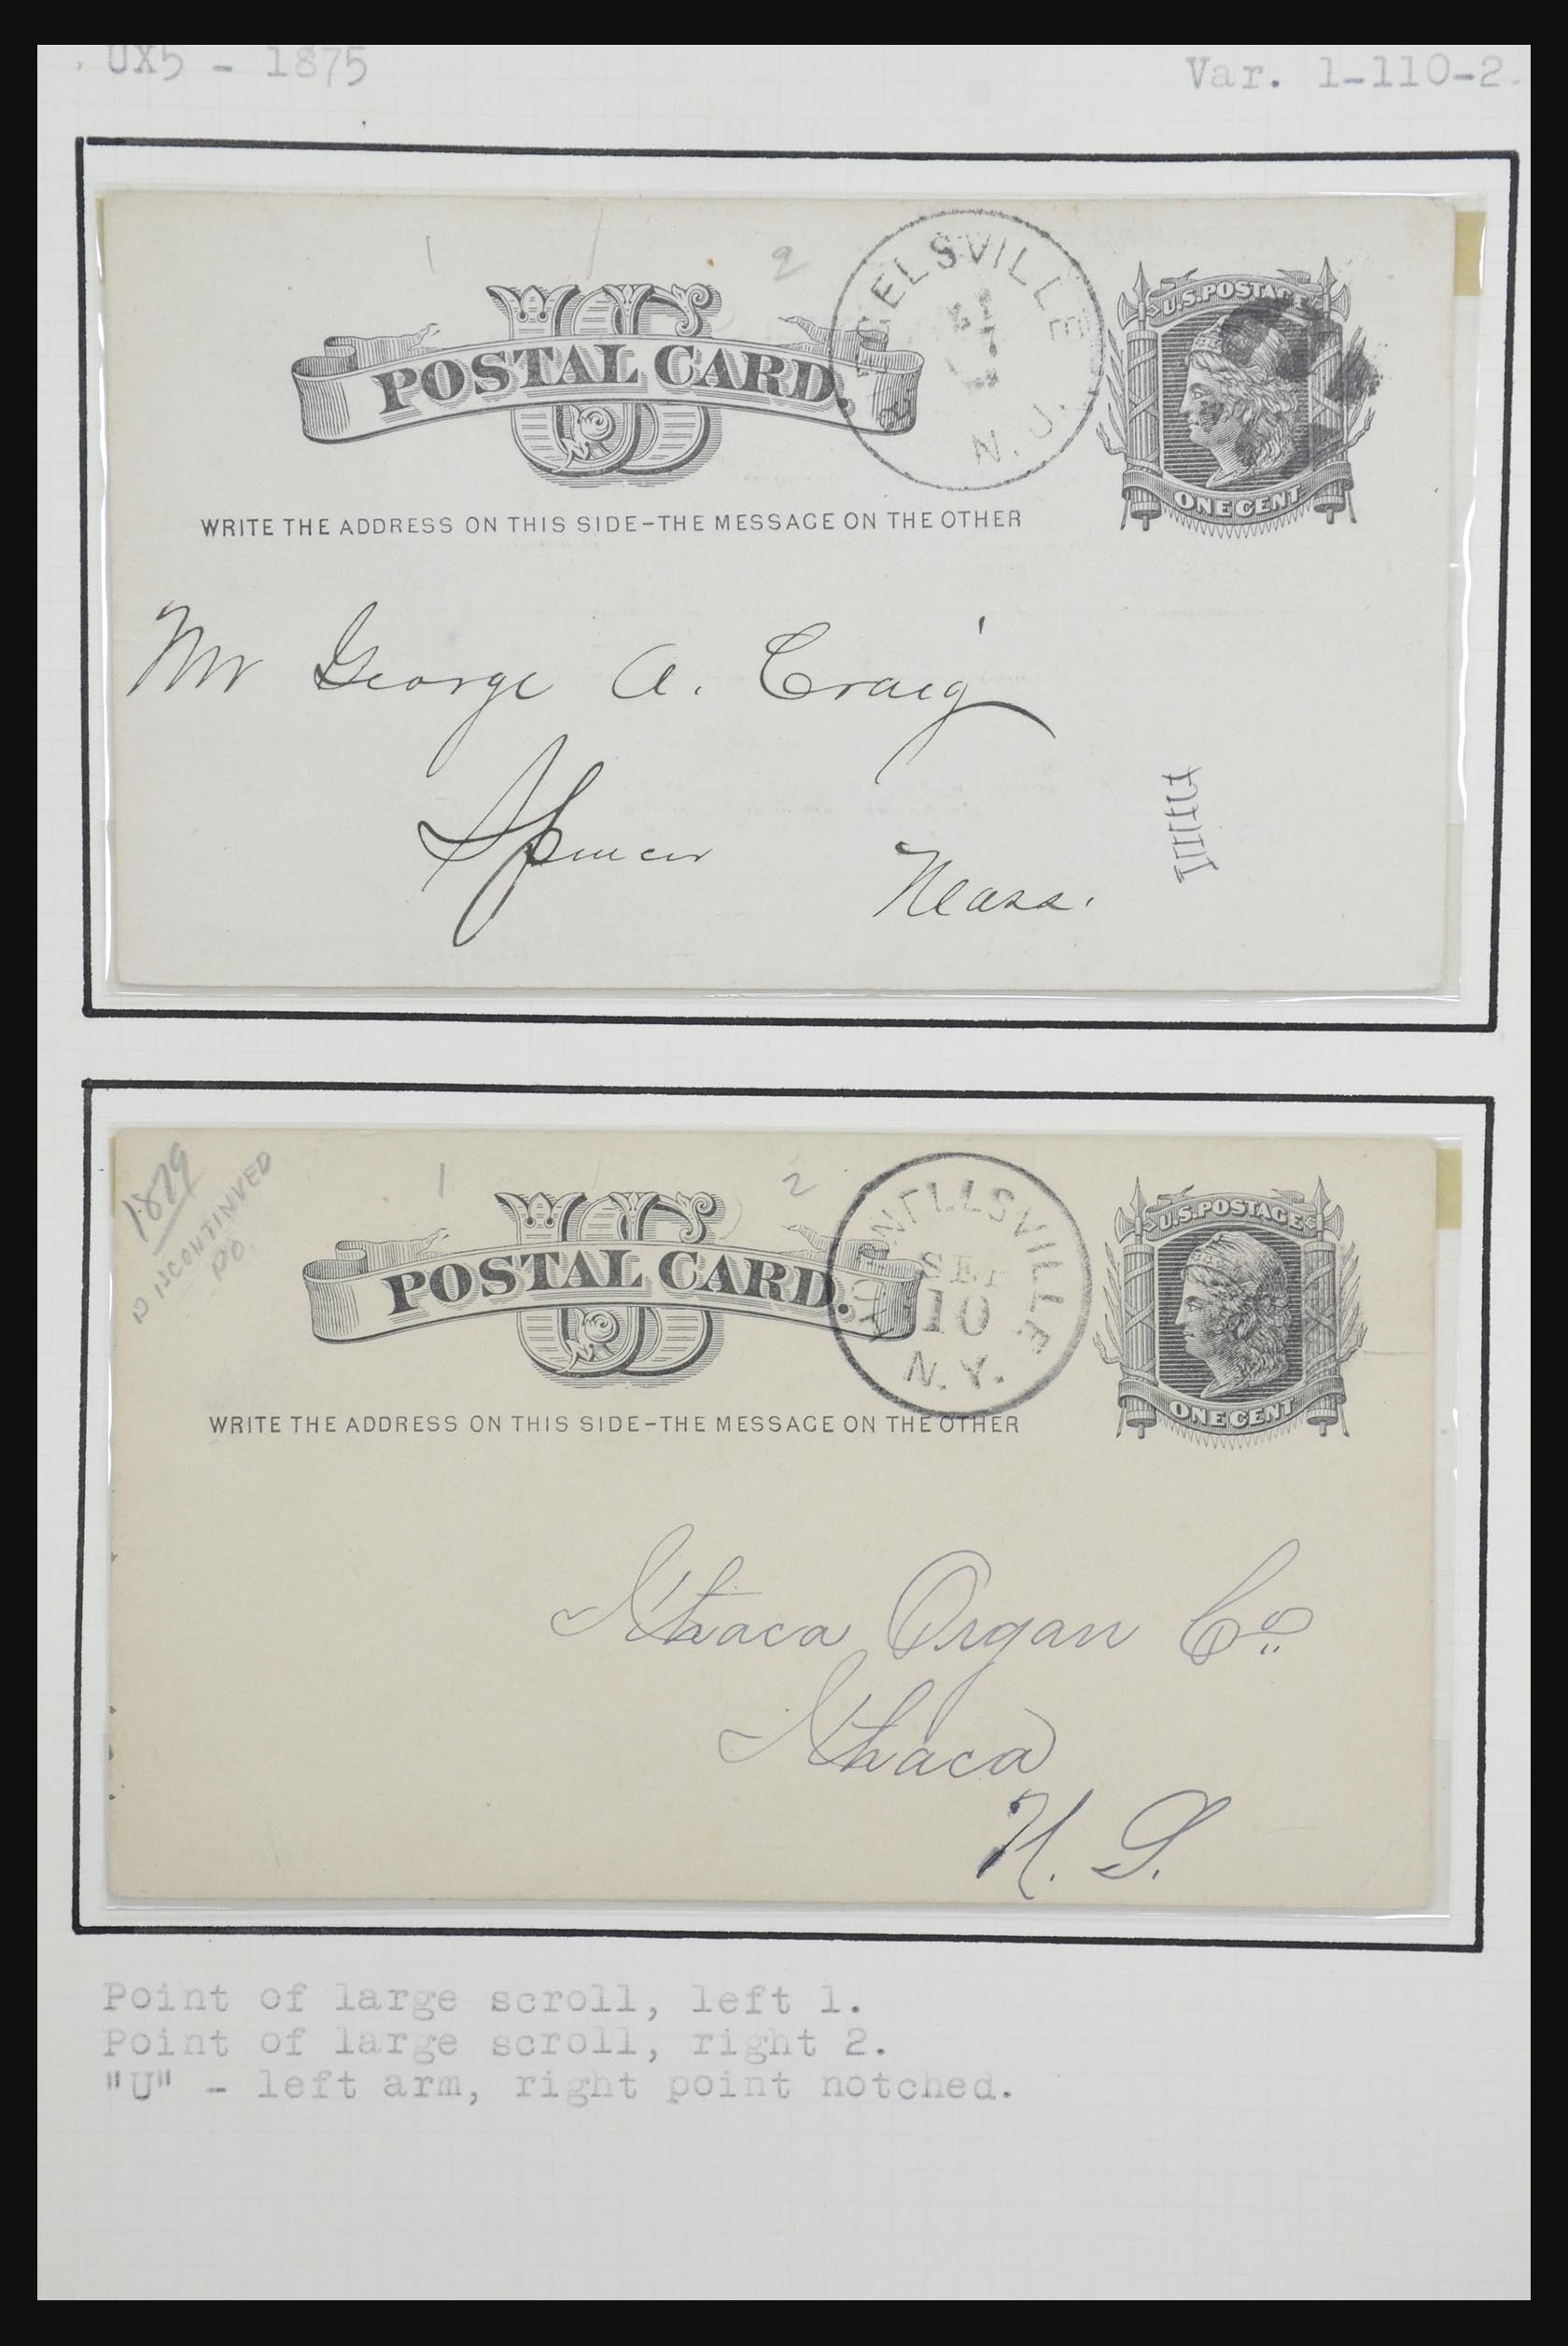 UX5 - 1875
Var. 1-110-2
1 / 2
POSTAL CARD.
ELSVILLE
N. J.
U.S. POSTAGE
ONE CENT
WRITE THE ADDRESS ON THIS SIDE-THE MESSAGE ON THE OTHER
Mr George A. Craig
Spencer Mass.
1879
DISCONTINUED
P.O.
1 2
POSTAL CARD.
SEP
10
N. Y.
U.S. POSTAGE
ONE CENT
WRITE THE ADDRESS ON THIS SIDE-THE MESSAGE ON THE OTHER
Ithaca Organ Co
Ithaca
N. Y.
Point of large scroll, left 1.
Point of large scroll, right 2.
"U" - left arm, right point notched.